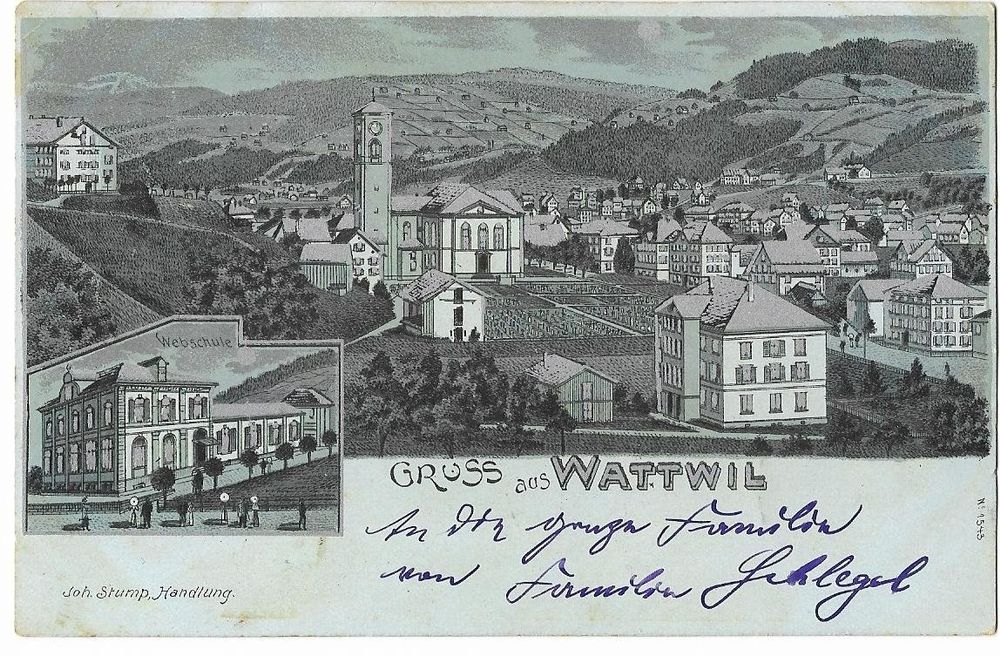 Webschule
GRUSS aus WATTWIL
An die ganze Familie
von Familie Schlegel
Joh. Stump, Handlung.
No 4543